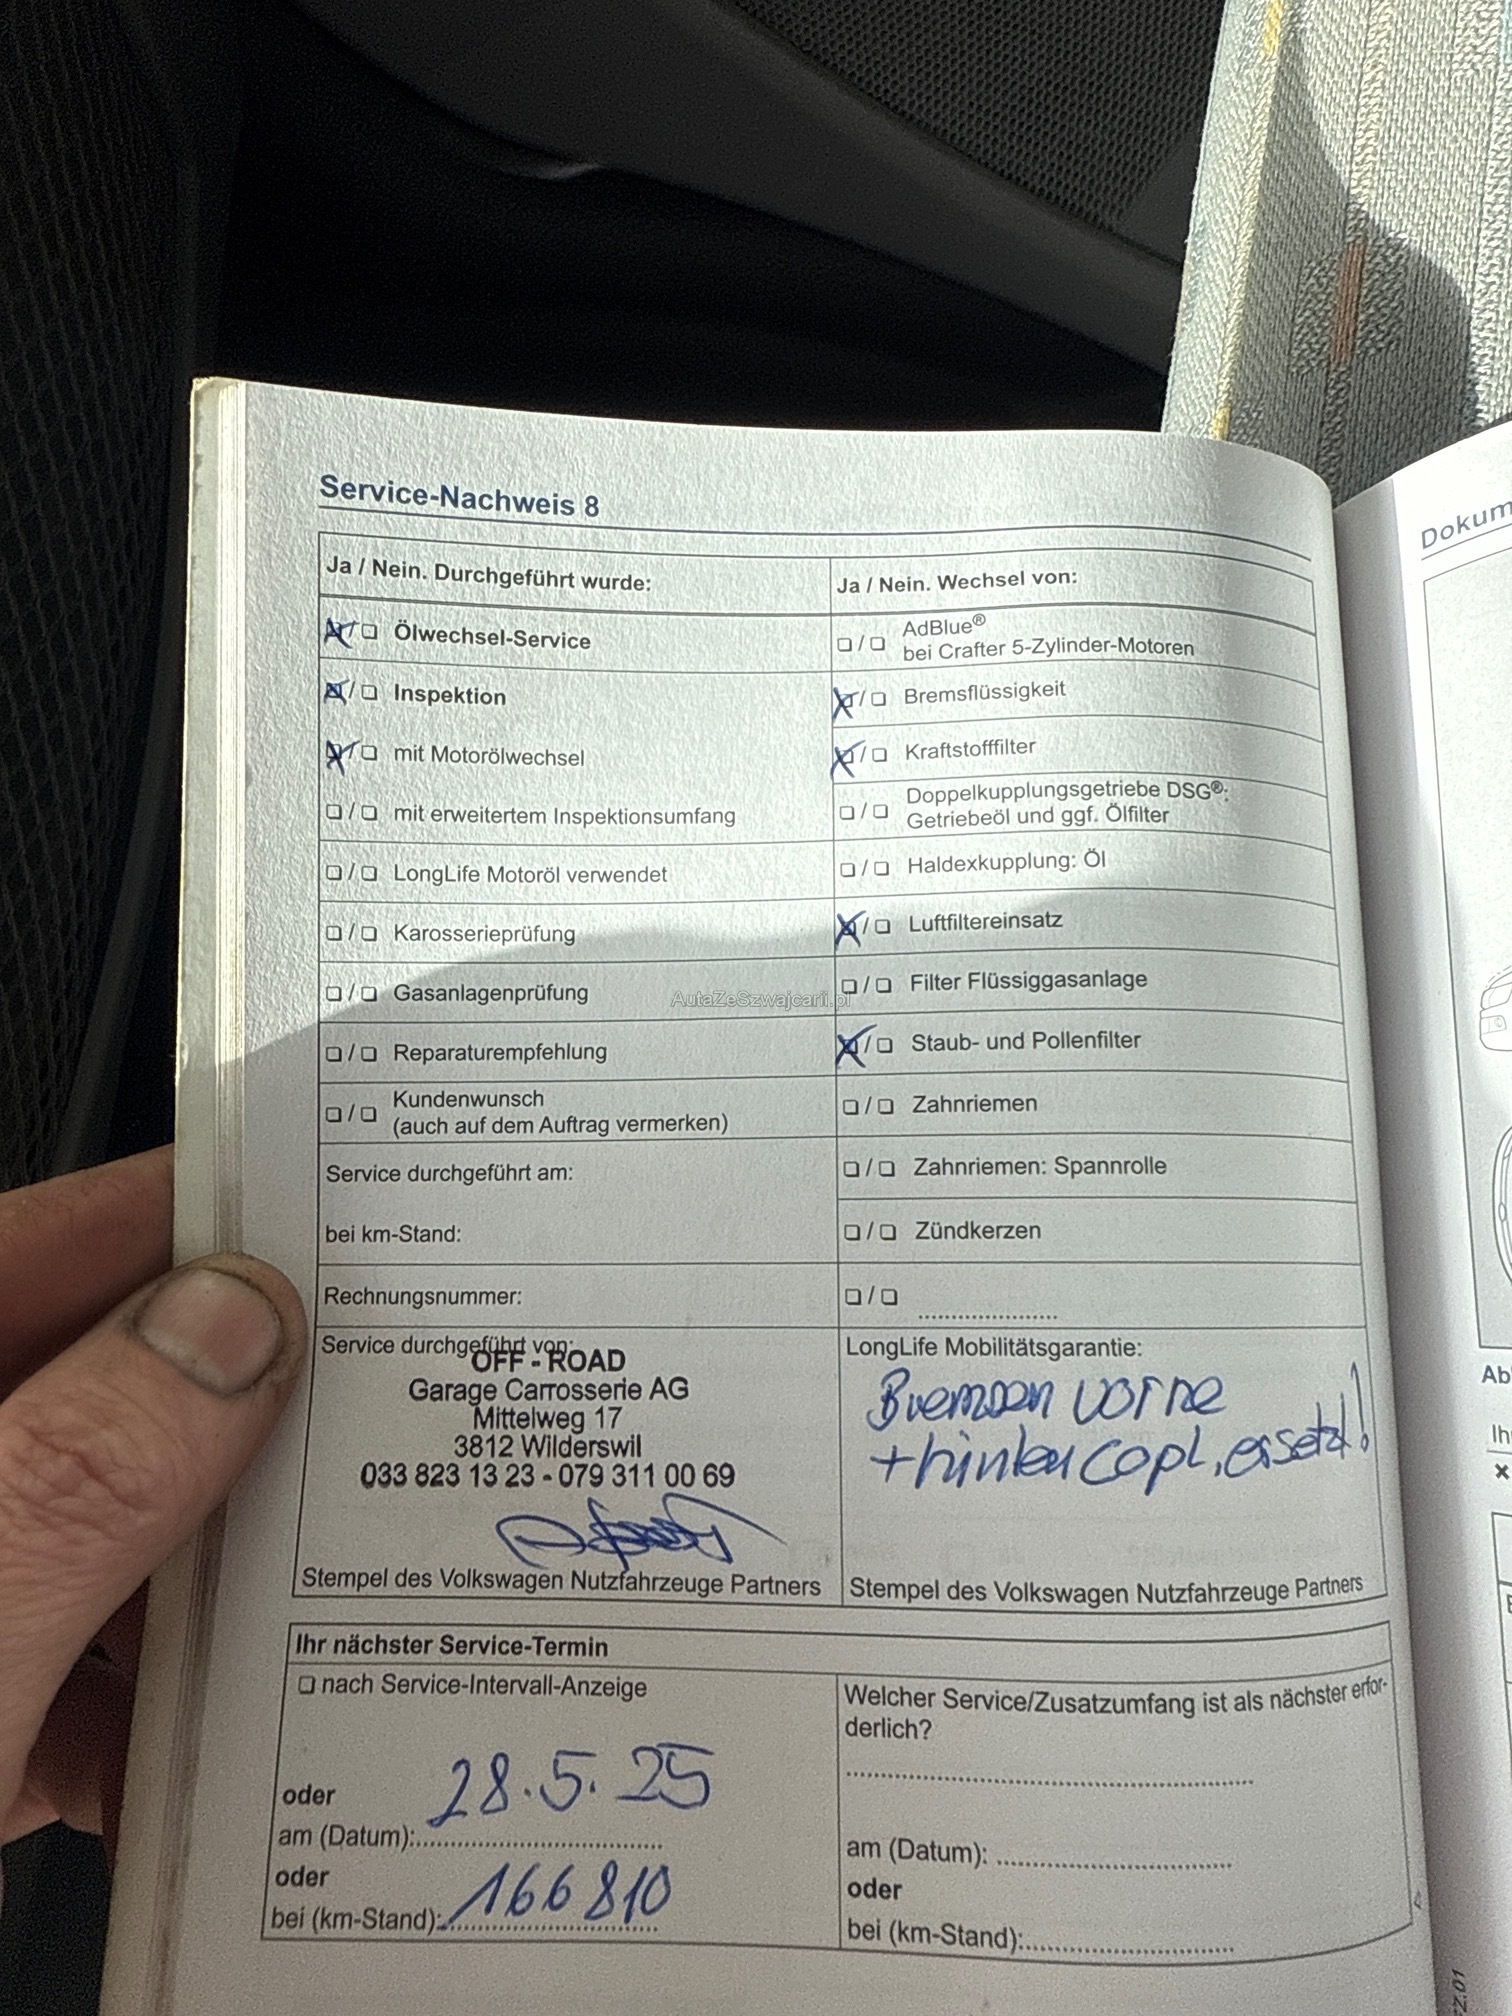 Service-Nachweis 8
Ja / Nein. Durchgeführt wurde:
Ölwechsel-Service
Inspektion
mit Motorölwechsel
mit erweitertem Inspektionsumfang
LongLife Motoröl verwendet
Karosserieprüfung
Gasanlagenprüfung
Reparaturempfehlung
Kundenwunsch
(auch auf dem Auftrag vermerken)
Service durchgeführt am:
bei km-Stand:
Rechnungsnummer:
Service durchgeführt von:
OFF - ROAD
Garage Carrosserie AG
Mittelweg 17
3812 Wilderswil
033 823 13 23 - 079 311 00 69
Stempel des Volkswagen Nutzfahrzeuge Partners
Ja / Nein. Wechsel von:
AdBlue®
bei Crafter 5-Zylinder-Motoren
Bremsflüssigkeit
Kraftstofffilter
Doppelkupplungsgetriebe DSG®:
Getriebeöl und ggf. Ölfilter
Haldexkupplung: Öl
Luftfiltereinsatz
Filter Flüssiggasanlage
Staub- und Pollenfilter
Zahnriemen
Zahnriemen: Spannrolle
Zündkerzen
LongLife Mobilitätsgarantie:
Bremsen vorne
+ hinten copl. ersetzt!
Stempel des Volkswagen Nutzfahrzeuge Partners
Ihr nächster Service-Termin
nach Service-Intervall-Anzeige
oder
am (Datum): 28.5.25
oder
bei (km-Stand): 166810
Welcher Service/Zusatzumfang ist als nächster erfor-
derlich?
am (Datum):
oder
bei (km-Stand):
AutaZeSzwajcarii.pl
Dokum
Ab
Ih